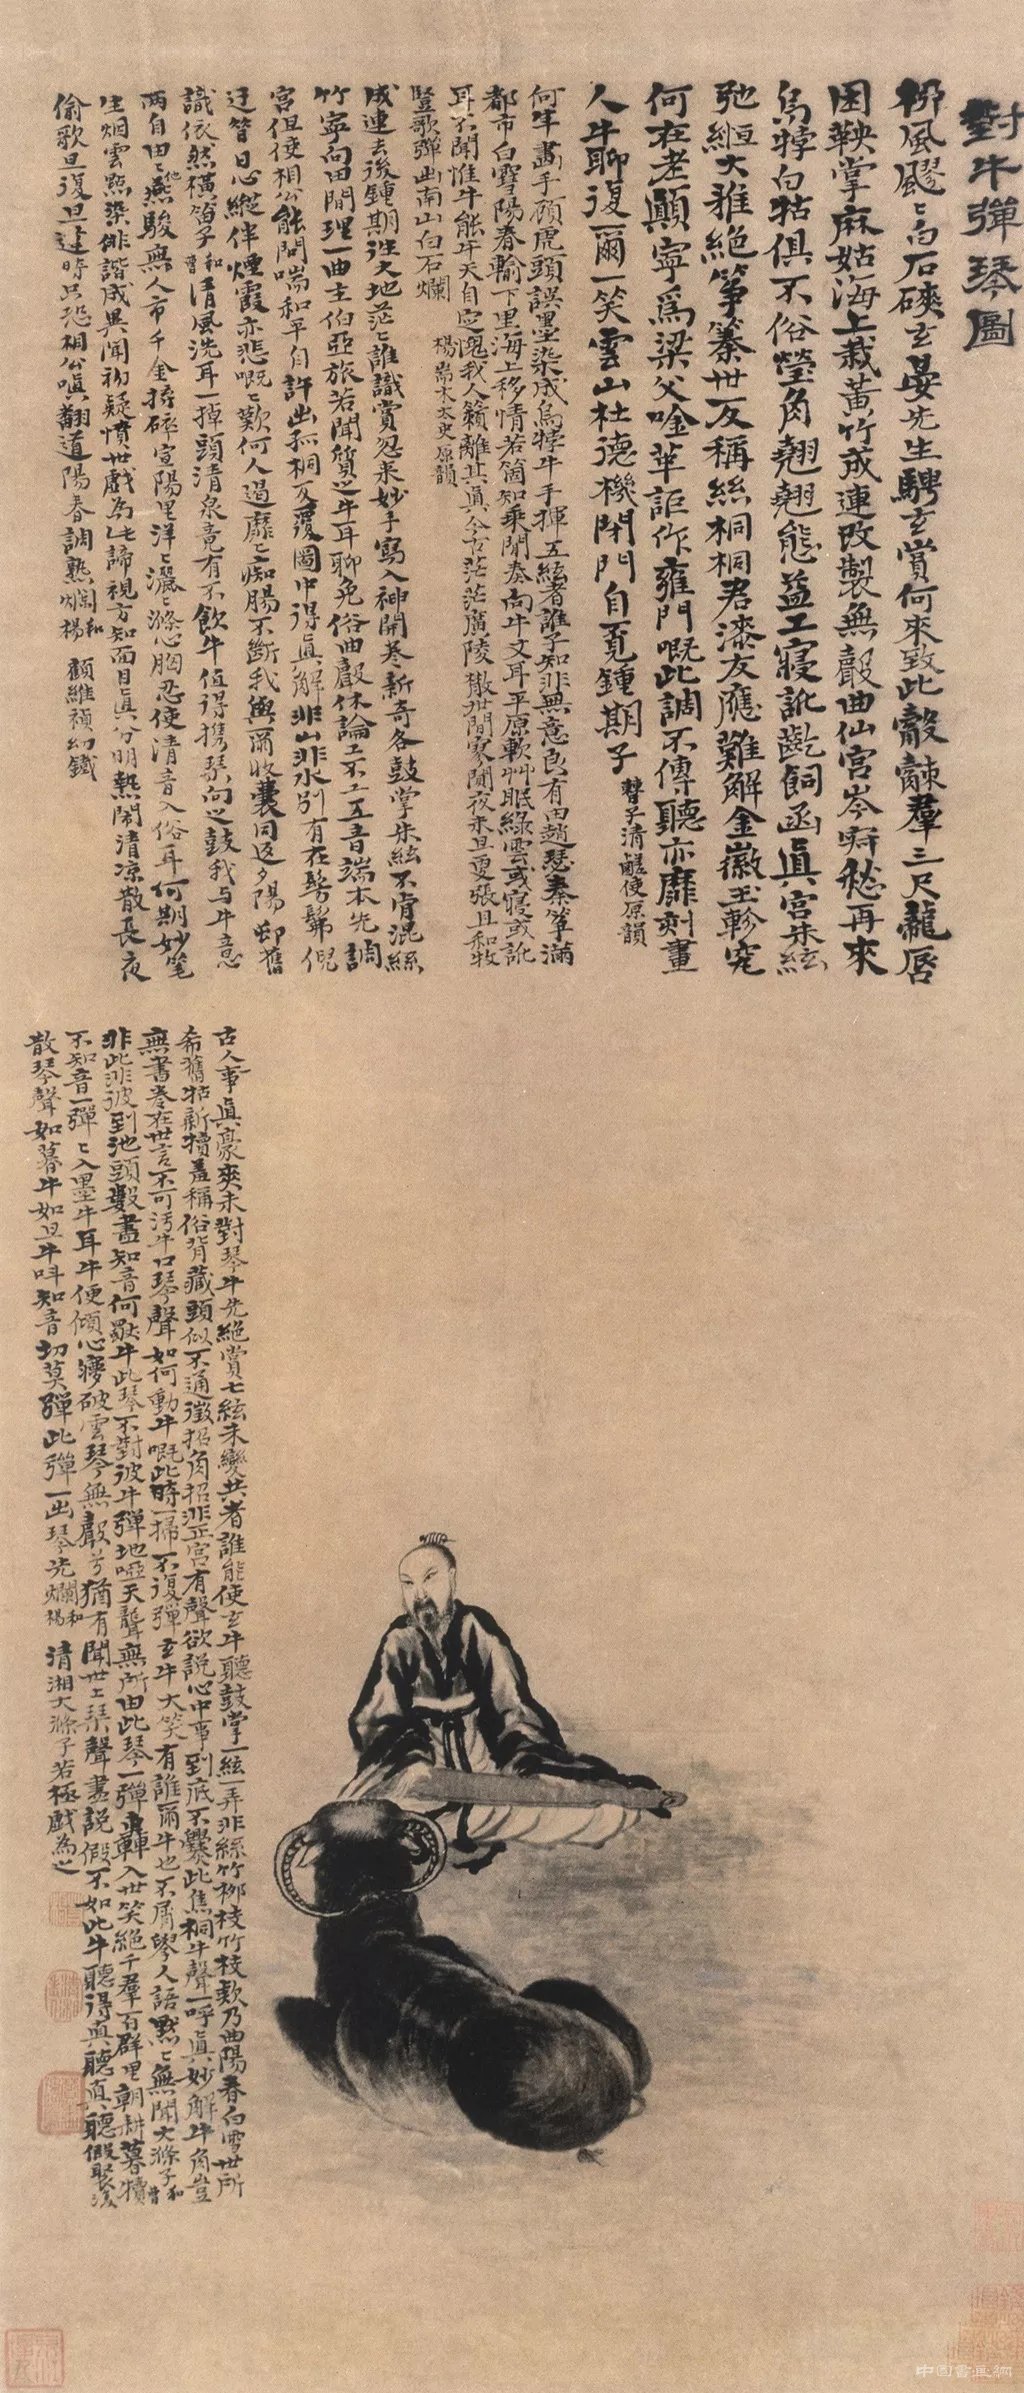 對牛彈琴圖
柳風飂〻白石磢玄晏先生騁玄賞何來致此觳觫羣三尺龍唇
困鞅掌麻姑海上栽黃竹成連改製無聲曲仙宮岑寂愁再來
烏犉白牯俱不俗瑩角翹翹態益工寢訛齝飼函真宮朱絃
弛縆大雅絕箏䈤世反稱絲桐桐君漆友應難解金徽玉軫究
何在老顛寧爲梁父唫莘詎作雍門嘅此調不傳聽亦靡刻畫
人牛聊復爾一笑雲山杜德機閉門自覓鍾期子 聲子清鹺使原韻
何年畫手顧虎頭誤墨染成烏犉牛手揮五絃者誰子知非無意良有由趙瑟秦箏滿
都市白雪陽春輸下里海上移情若箇知乘閒奏向牛文耳平原軟艸眠綠雲或寢或訛
耳不聞惟牛能牛天自定愧我人籟離其真今古茫茫廣陵散世間寥闃夜未旦更張且和牧
豎歌彈出南山白石爛 楊耑木太史原韻
成連去後鍾期往大地茫〻誰識賞忽來妙手寫入神開卷新奇各鼓掌朱絃不肯混絲
竹寧向田間理一曲主伯亞旅若聞質之牛耳聊免俗曲聲休論工不工五音端本先調
宮但使相公能問喘和平自許出孤桐反覆圖中得真解非山非水別有在髣髴倪
迂昔日心縱伴煙霞亦悲嘅〻歎何人過靡〻痴腸不斷我與爾收囊同返夕陽邨舊
識依然橫笛子 和曹
清風洗耳一掉頭清泉竟有不飲牛值得攜琴向之鼓我与牛意
兩自由〻他燕駿無人市千金摔碎宣陽里洋〻灑〻滌心胸忍使清音入俗耳何期妙笔
生烟雲點染俳諧成異聞初疑憤世戲為此諦視方知面目真分明熱閙清凉散長夜
偷歌旦復旦達時只恐相公嗔翻道陽春調熟爛 和楊 顧維禎幻鐵
古人事真豪爽未對琴牛先絕賞七絃未變共者誰能使玄牛聽鼓掌一絃一弄非絲竹柳枝竹枝欸乃曲陽春白雪世所
希舊牯新犢羞稱俗背藏頭似不通徵招角招非正宮有聲欲說心中事到底不爨此焦桐牛聲一呼真妙解牛角豈
無書卷在世言不可污牛口琴聲如何動牛嘅此時一掃不復彈玄牛大笑有誰爾牛也不屑學人語默〻無聞大滌子 和曹
非此非彼到池頭數盡知音何獨牛此琴不對彼牛彈地啞天聾無所由此琴一彈轟入世笑絕千羣百群里朝耕暮犢
不知音一彈〻入墨牛耳牛便傾心寢破雲琴無聲兮猶有聞世上琴聲盡說假不如此牛聽得真聽真聽假聚復
散琴聲如暮牛如旦牛叫知音切莫彈此彈一出琴先爛 和楊 清湘大滌子若極戲為之